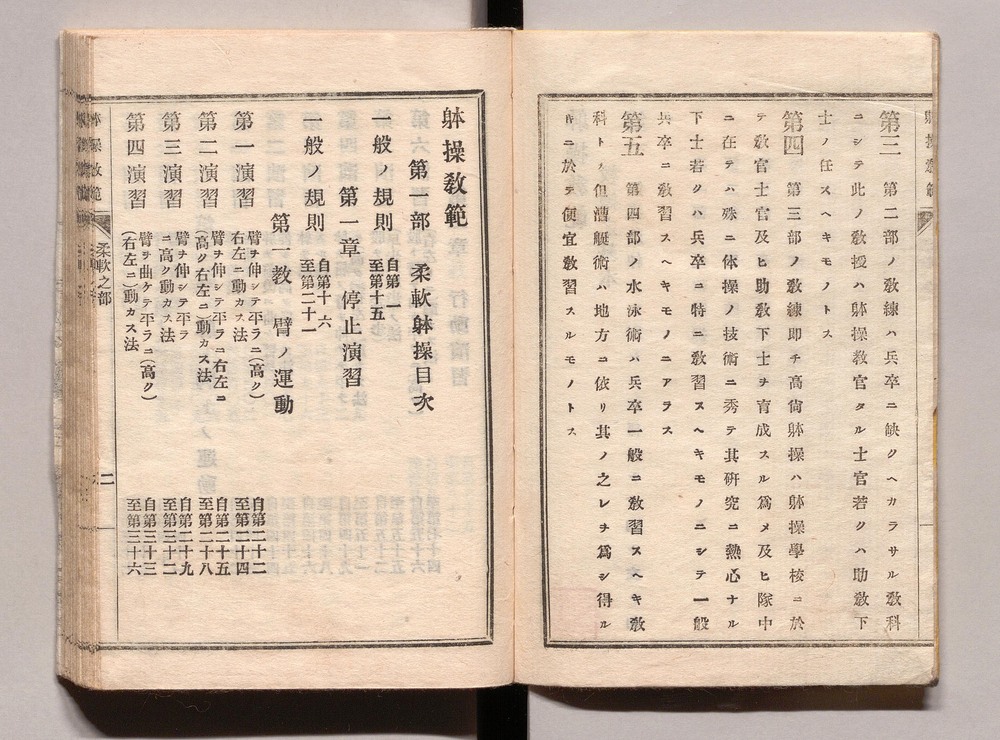 第三　第二部ノ敎練ハ兵卒ニ缺クヘカラサル敎科
ニシテ此ノ敎授ハ躰操敎官タル士官若クハ助敎下
士ノ任スヘキモノトス
第四　第三部ノ敎練卽チ高尙躰操ハ躰操學校ニ於
テ敎官士官及ヒ助敎下士ヲ育成スル爲メ及ヒ隊中
ニ在テハ殊ニ体操ノ技術ニ秀テ其硏究ニ熱心ナル
下士若クハ兵卒ニ特ニ敎習スヘキモノニシテ一般
兵卒ニ敎習スヘキモノニアラス
第五　第四部ノ水泳術ハ兵卒一般ニ敎習スヘキ敎
科トス但漕艇術ハ地方ニ依リ其ノ之レヲ爲シ得ル
ニ於テ便宜敎習スルモノトス
躰操敎範
第一部　柔軟躰操目次
一般ノ規則　自第一至第十五
第一章　停止演習
一般ノ規則　自第十六至第二十一
第一敎　臂ノ運動
第一演習　臂ヲ伸シテ平ラニ(高ク)右左ニ動カス法　自第二十二至第二十四
第二演習　臂ヲ伸シテ平ラニ右左ニ(高ク右左ニ)動カス法　自第二十五至第二十八
第三演習　臂ヲ伸シテ平ラニ高ク動カス法　自第二十九至第三十二
第四演習　臂ヲ曲ケテ平ラニ(高ク)(右左ニ)動カス法　自第三十三至第三十六
柔軟之部
二